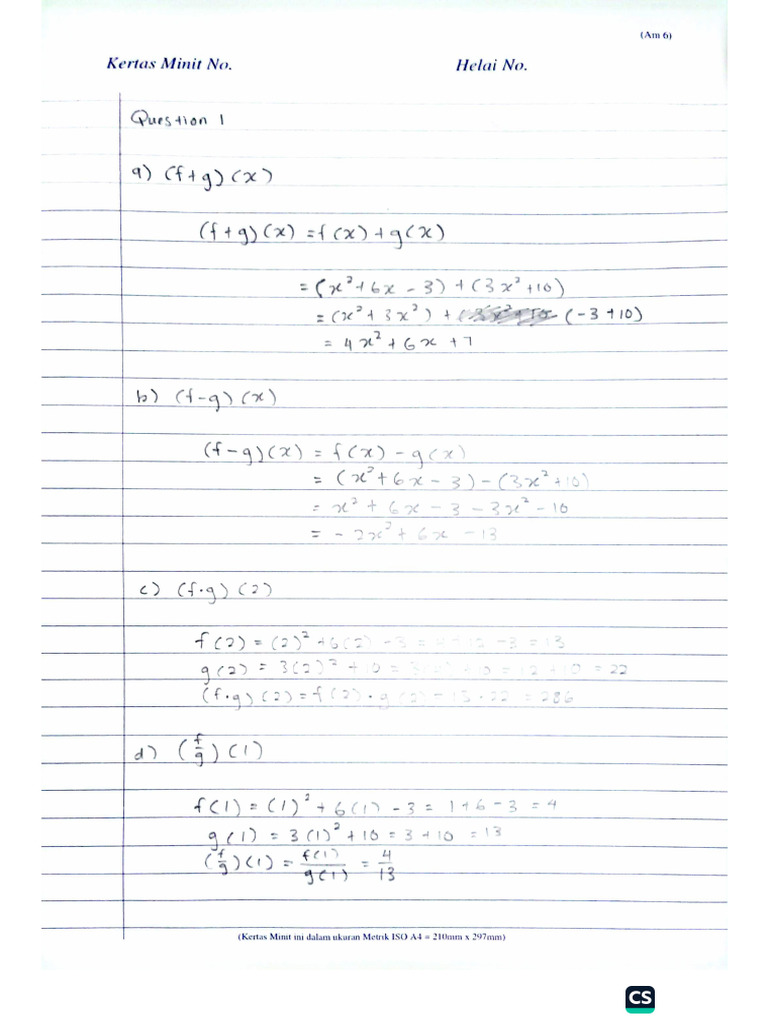 (Am 6)
Kertas Minit No. Helai No.
Question 1
a) (f+g)(x)
(f+g)(x) = f(x) + g(x)
= (x²+6x-3) + (3x²+10)
= (x²+3x²) + (-3+10)
= 4x²+6x+7
b) (f-g)(x)
(f-g)(x) = f(x) - g(x)
= (x²+6x-3) - (3x²+10)
= x²+6x-3-3x²-10
= -2x²+6x-13
c) (f·g)(2)
f(2) = (2)²+6(2)-3 = 4+12-3 = 13
g(2) = 3(2)²+10 = 3(4)+10 = 12+10 = 22
(f·g)(2) = f(2)·g(2) = 13·22 = 286
d) (f/g)(1)
f(1) = (1)²+6(1)-3 = 1+6-3 = 4
g(1) = 3(1)²+10 = 3+10 = 13
(f/g)(1) = f(1)/g(1) = 4/13
(Kertas Minit ini dalam ukuran Metrik ISO A4 = 210mm x 297mm)
CS